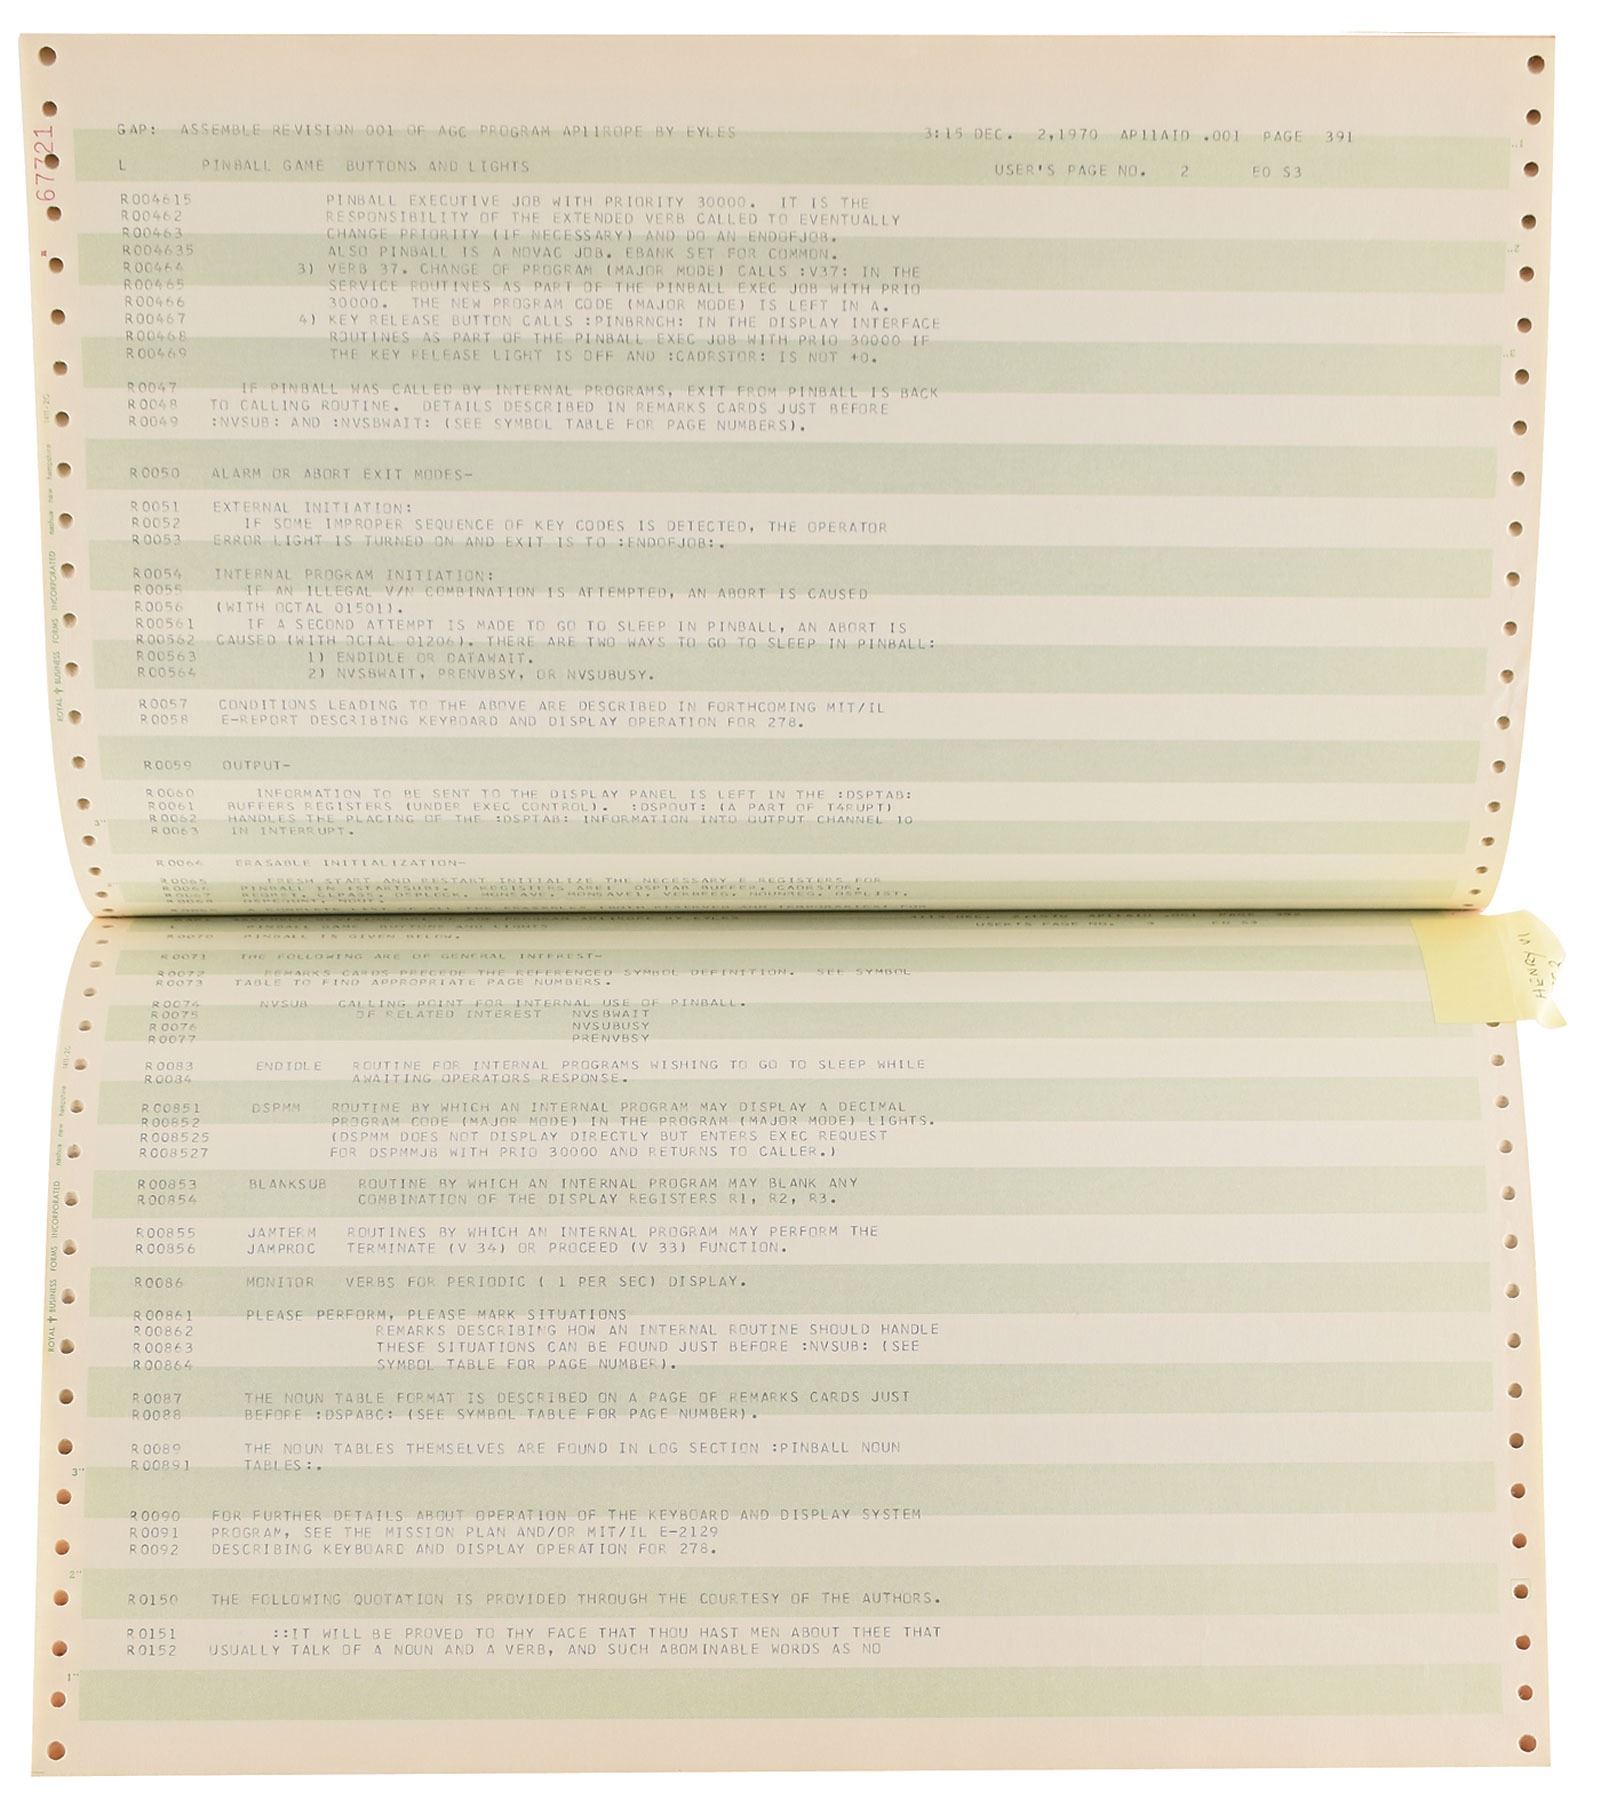 GAP: ASSEMBLE REVISION 001 OF AGC PROGRAM AP11ROPE BY EYLES 3:15 DEC. 2,1970 AP11AID .001 PAGE 391
L PINBALL GAME BUTTONS AND LIGHTS USER'S PAGE NO. 2 E0 S3
R004615 PINBALL EXECUTIVE JOB WITH PRIORITY 30000. IT IS THE
R00462 RESPONSIBILITY OF THE EXTENDED VERB CALLED TO EVENTUALLY
R00463 CHANGE PRIORITY (IF NECESSARY) AND DO AN ENDOFJOB.
R004635 ALSO PINBALL IS A NOVAC JOB. EBANK SET FOR COMMON.
R00464 3) VERB 37. CHANGE OF PROGRAM (MAJOR MODE) CALLS :V37: IN THE
R00465 SERVICE ROUTINES AS PART OF THE PINBALL EXEC JOB WITH PRIO
R00466 30000. THE NEW PROGRAM CODE (MAJOR MODE) IS LEFT IN A.
R00467 4) KEY RELEASE BUTTON CALLS :PINBRNCH: IN THE DISPLAY INTERFACE
R00468 ROUTINES AS PART OF THE PINBALL EXEC JOB WITH PRIO 30000 IF
R00469 THE KEY RELEASE LIGHT IS OFF AND :CADRSTOR: IS NOT +0.
R0047 IF PINBALL WAS CALLED BY INTERNAL PROGRAMS, EXIT FROM PINBALL IS BACK
R0048 TO CALLING ROUTINE. DETAILS DESCRIBED IN REMARKS CARDS JUST BEFORE
R0049 :NVSUB: AND :NVSBWAIT: (SEE SYMBOL TABLE FOR PAGE NUMBERS).
R0050 ALARM OR ABORT EXIT MODES-
R0051 EXTERNAL INITIATION:
R0052 IF SOME IMPROPER SEQUENCE OF KEY CODES IS DETECTED, THE OPERATOR
R0053 ERROR LIGHT IS TURNED ON AND EXIT IS TO :ENDOFJOB:.
R0054 INTERNAL PROGRAM INITIATION:
R0055 IF AN ILLEGAL V/N COMBINATION IS ATTEMPTED, AN ABORT IS CAUSED
R0056 (WITH OCTAL 01501).
R00561 IF A SECOND ATTEMPT IS MADE TO GO TO SLEEP IN PINBALL, AN ABORT IS
R00562 CAUSED (WITH OCTAL 01206). THERE ARE TWO WAYS TO GO TO SLEEP IN PINBALL:
R00563 1) ENDIDLE OR DATAWAIT.
R00564 2) NVSBWAIT, PRENVBSY, OR NVSUBUSY.
R0057 CONDITIONS LEADING TO THE ABOVE ARE DESCRIBED IN FORTHCOMING MIT/IL
R0058 E-REPORT DESCRIBING KEYBOARD AND DISPLAY OPERATION FOR 278.
R0059 OUTPUT-
R0060 INFORMATION TO BE SENT TO THE DISPLAY PANEL IS LEFT IN THE :DSPTAB:
R0061 BUFFERS REGISTERS (UNDER EXEC CONTROL). :DSPOUT: (A PART OF T4RUPT)
R0062 HANDLES THE PLACING OF THE :DSPTAB: INFORMATION INTO OUTPUT CHANNEL 10
R0063 IN INTERRUPT.
R0064 ERASABLE INITIALIZATION-
R0065 FRESH START AND RESTART INITIALIZE THE NECESSARY E REGISTERS FOR
R0066 PINBALL IN :STARTSUB:. REGISTERS ARE: DSPTAB BUFFER, CADRSTOR,
R0067 REQRET, CLPASS, DSPLOCK, MONSAVE, MONSAVE1, VERBREG, NOUNREG, DSPLIST,
R0068 DSPCOUNT, NOUT.
A COMPLETE LIST OF ALL THE ERASABLES (BOTH RESERVED AND TEMPORARIES) FOR
L PINBALL GAME BUTTONS AND LIGHTS USER'S PAGE NO. 3 E0 S3
R0070 PINBALL IS GIVEN BELOW.
R0071 THE FOLLOWING ARE OF GENERAL INTEREST-
R0072 REMARKS CARDS PRECEDE THE REFERENCED SYMBOL DEFINITION. SEE SYMBOL
R0073 TABLE TO FIND APPROPRIATE PAGE NUMBERS.
R0074 NVSUB CALLING POINT FOR INTERNAL USE OF PINBALL.
R0075 OF RELATED INTEREST NVSBWAIT
R0076 NVSUBUSY
R0077 PRENVBSY
R0083 ENDIDLE ROUTINE FOR INTERNAL PROGRAMS WISHING TO GO TO SLEEP WHILE
R0084 AWAITING OPERATORS RESPONSE.
R00851 DSPMM ROUTINE BY WHICH AN INTERNAL PROGRAM MAY DISPLAY A DECIMAL
R00852 PROGRAM CODE (MAJOR MODE) IN THE PROGRAM (MAJOR MODE) LIGHTS.
R008525 (DSPMM DOES NOT DISPLAY DIRECTLY BUT ENTERS EXEC REQUEST
R008527 FOR DSPMMJB WITH PRIO 30000 AND RETURNS TO CALLER.)
R00853 BLANKSUB ROUTINE BY WHICH AN INTERNAL PROGRAM MAY BLANK ANY
R00854 COMBINATION OF THE DISPLAY REGISTERS R1, R2, R3.
R00855 JAMTERM ROUTINES BY WHICH AN INTERNAL PROGRAM MAY PERFORM THE
R00856 JAMPROC TERMINATE (V 34) OR PROCEED (V 33) FUNCTION.
R0086 MONITOR VERBS FOR PERIODIC ( 1 PER SEC) DISPLAY.
R00861 PLEASE PERFORM, PLEASE MARK SITUATIONS
R00862 REMARKS DESCRIBING HOW AN INTERNAL ROUTINE SHOULD HANDLE
R00863 THESE SITUATIONS CAN BE FOUND JUST BEFORE :NVSUB: (SEE
R00864 SYMBOL TABLE FOR PAGE NUMBER).
R0087 THE NOUN TABLE FORMAT IS DESCRIBED ON A PAGE OF REMARKS CARDS JUST
R0088 BEFORE :DSPABC: (SEE SYMBOL TABLE FOR PAGE NUMBER).
R0089 THE NOUN TABLES THEMSELVES ARE FOUND IN LOG SECTION :PINBALL NOUN
R00891 TABLES:.
R0090 FOR FURTHER DETAILS ABOUT OPERATION OF THE KEYBOARD AND DISPLAY SYSTEM
R0091 PROGRAM, SEE THE MISSION PLAN AND/OR MIT/IL E-2129
R0092 DESCRIBING KEYBOARD AND DISPLAY OPERATION FOR 278.
R0150 THE FOLLOWING QUOTATION IS PROVIDED THROUGH THE COURTESY OF THE AUTHORS.
R0151 ::IT WILL BE PROVED TO THY FACE THAT THOU HAST MEN ABOUT THEE THAT
R0152 USUALLY TALK OF A NOUN AND A VERB, AND SUCH ABOMINABLE WORDS AS NO
67721
ROYAL BUSINESS FORMS INCORPORATED nashua new hampshire
ROYAL BUSINESS FORMS INCORPORATED nashua new hampshire
HENRY VI